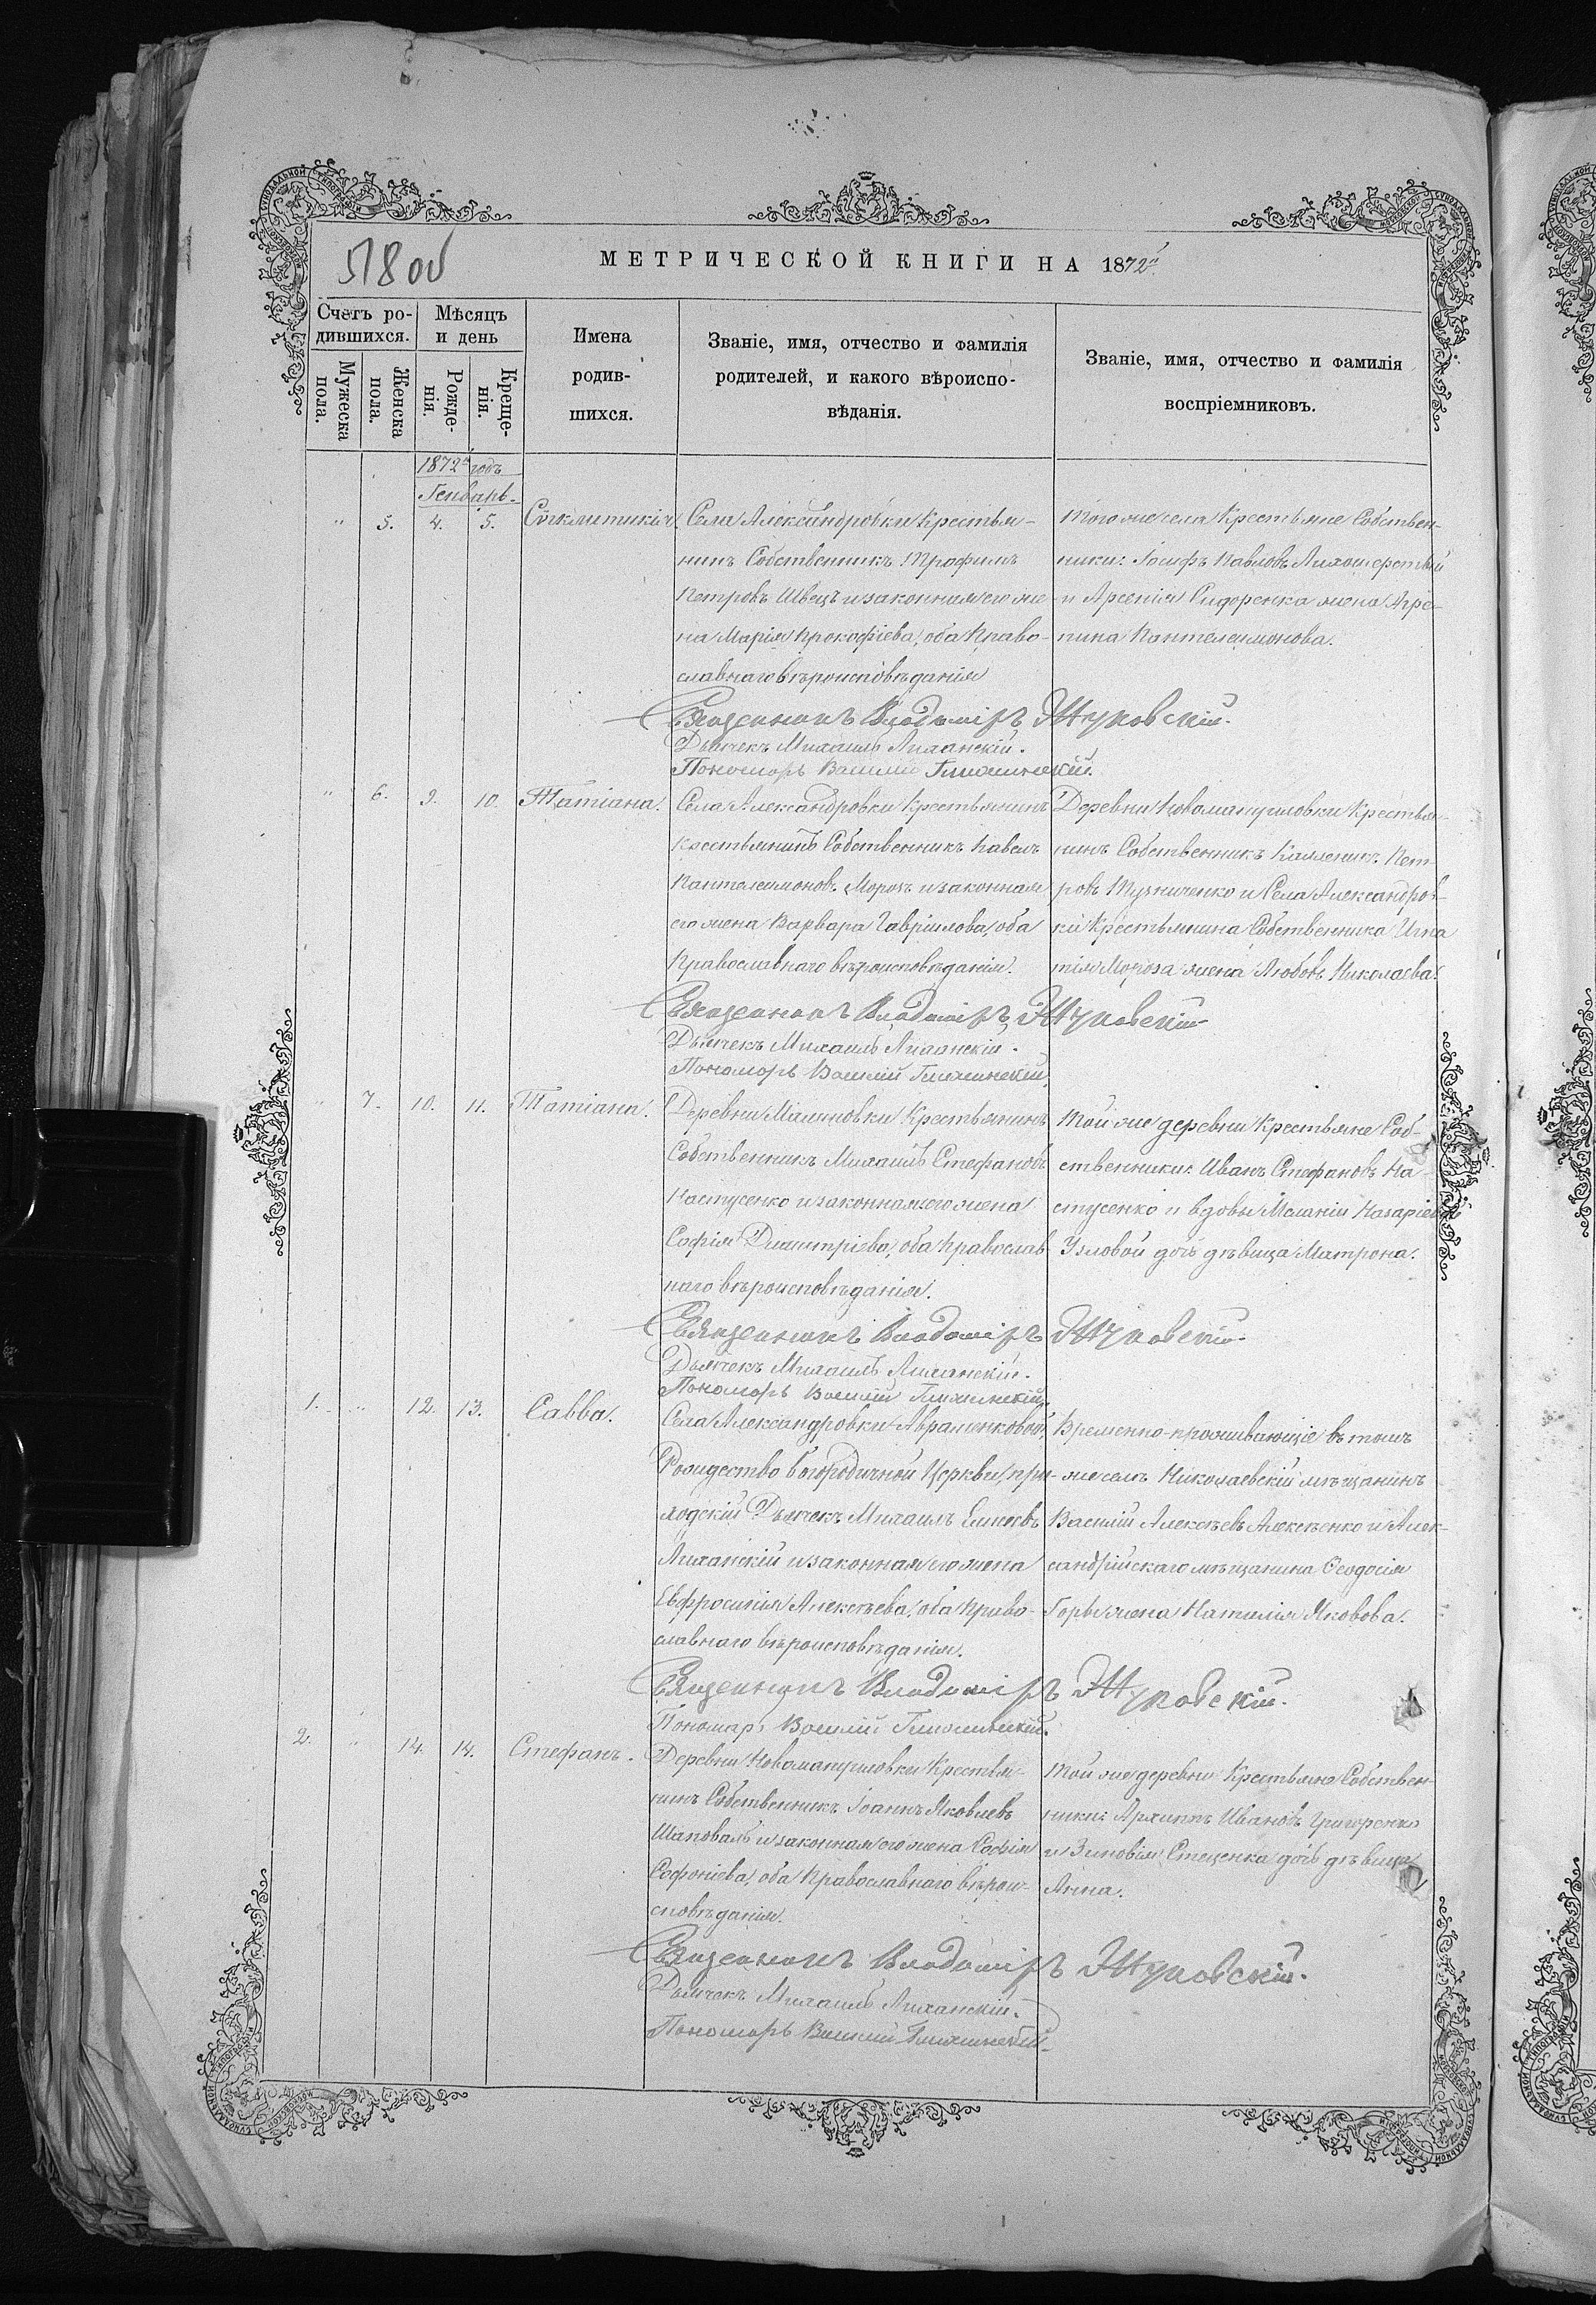 518 об
МЕТРИЧЕСКОЙ КНИГИ НА 1872й
Счетъ ро-
дившихся.
Мѣсяцъ
и день
Имена
родив-
шихся.
Званіе, имя, отчество и фамилія
родителей, и какого вѣроиспо-
вѣданія.
Званіе, имя, отчество и фамилія
воспріемниковъ.
Мужеска
пола.
Женска
пола.
Рожде-
нія.
Креще-
нія.
1872й годъ
Генварь.
" 5. 4. 5. Сѵнклитикія
Села Александровки Крестья-
нинъ Собственникъ Трофимъ
Петровъ Швецъ и законная его же-
на Марія Прокофіева, оба Право-
славнаго вѣроисповѣданія
Того же села Крестьяне Собствен-
ники: Іосифъ Павловъ Лихошерстый
и Арсенія Сидоренка жена Агрип-
пина Пантелеимонова.
Священникъ Владиміръ Жуковскій.
Дьячекъ Михаилъ Лиханскій.
Пономарь Василій
" 6. 9. 10. Татіана.
Села Александровки Крестьянинъ
Крестьянинъ Собственникъ Павелъ
Пантелеимоновъ Морозъ и законная
его жена Варвара Гавріилова, оба
Православнаго вѣроисповѣданія.
Деревни Новомануиловки Крестья-
нинъ Собственникъ Каллиникъ Пет-
ровъ Тузниченко и Села Александров-
ки Крестьянина Собственника Игна
тія Мороза жена Любовь Николаева.
Священникъ Владиміръ Жуковскій
Дьячекъ Михаилъ Лиханскій.
Пономарь Василій
" 7. 10. 11. Татіана.
Деревни Малиновки Крестьянинъ
Собственникъ Михаилъ Стефановъ
Настусенко и законная его жена
Софія Димитріева, оба Православ-
наго вѣроисповѣданія.
Той же деревни Крестьяне Соб-
ственники: Иванъ Стефановъ На-
стусенко и вдовы Меланіи Назаріевой
Узловой дочь дѣвица Матрона.
Священникъ Владиміръ Жуковскій.
Дьячекъ Михаилъ Лиханскій.
Пономарь Василій
1. " 12. 13. Савва.
Села Александровки Авраменковой,
Рождество Богородичной Церкви, при-
ходскій Дьячекъ Михаилъ
Лиханскій и законная его жена
Евфросинія Алексѣева, оба Право-
славнаго вѣроисповѣданія.
Временно-проживающіе въ томъ
же селѣ Николаевскій мѣщанинъ
Василій Алексѣевъ Алексѣенко и Алек-
сандрійскаго мѣщанина Ѳеодосія
жена Наталія Яковова.
Священникъ Владиміръ Жуковскій.
Пономарь Василій
2. " 14. 14. Стефанъ.
Деревни Новомануиловки Крестья-
нинъ Собственникъ Іоаннъ Яковлевъ
Шаповалъ и законная его жена Софія
Софоніева, оба Православнаго вѣрои-
сповѣданія.
Той же деревни Крестьяне Собствен-
ники: Архипъ Ивановъ Григоренко
и Зиновія Стеценка дочь дѣвица
Анна.
Священникъ Владиміръ Жуковскій.
Дьячекъ Михаилъ Лиханскій.
Пономарь Василій